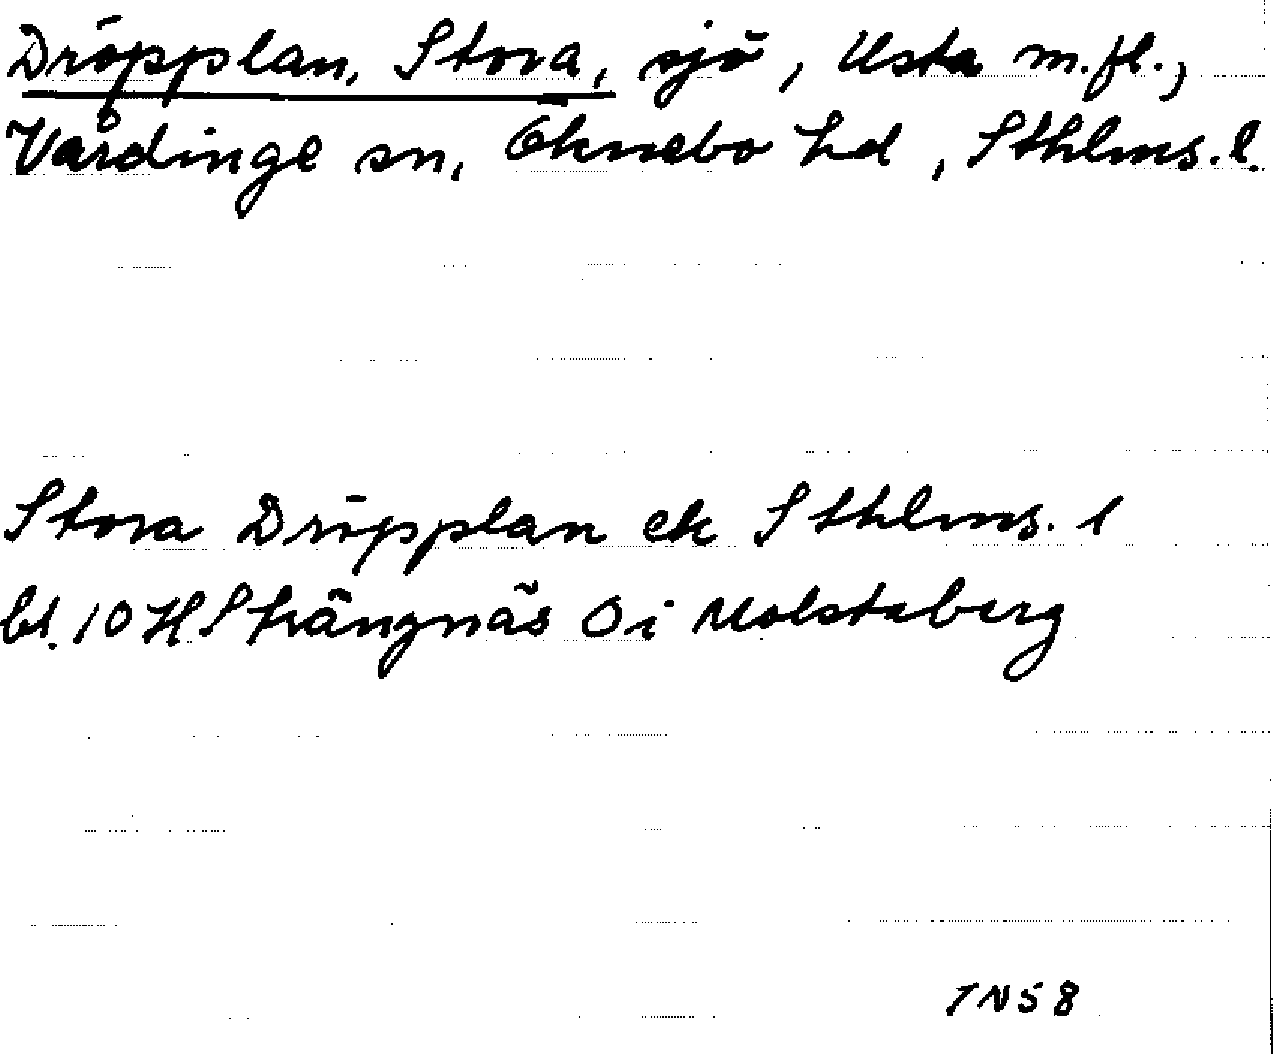 Dröpplan, Stora, sjö, Usta m.fl.,
Vårdinge sn, Öknebo hd, Sthlms.l.
Stora Dröpplan ek Sthlms.l
bl. 10 H Strängnäs Öi Molstaberg
TN58